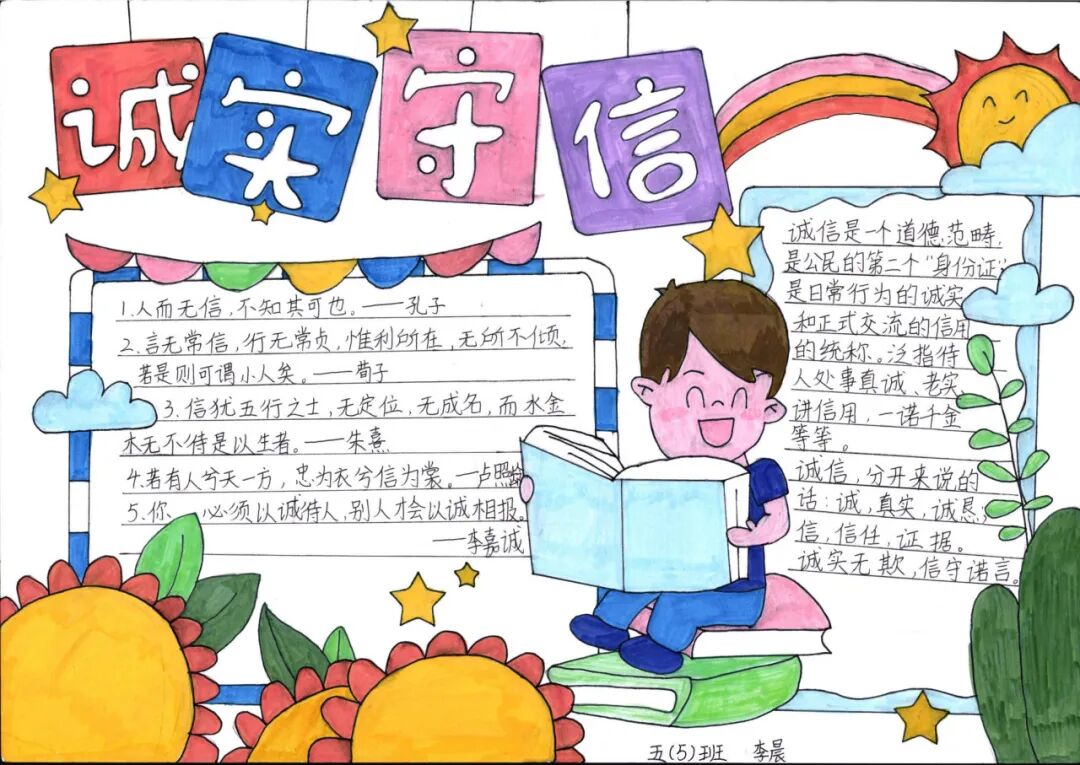 诚实守信
1.人而无信,不知其可也。——孔子
2.言无常信,行无常贞,惟利所在,无所不倾,
若是则可谓小人矣。——荀子
3.信犹五行之士,无定位,无成名,而水金
木无不待是以生者。——朱熹
4.若有人兮天一方,忠为衣兮信为裳。—卢照
5.你 必须以诚待人,别人才会以诚相报。
——李嘉诚
诚信是一个道德范畴,
是公民的第二个“身份证”
是日常行为的诚实
和正式交流的信用
的统称。泛指待
人处事真诚、老实、
讲信用,一诺千金
等等。
诚信,分开来说的
话:诚,真实,诚恳;
信,信任,证据。
诚实无欺,信守诺言。
五(5)班 李晨